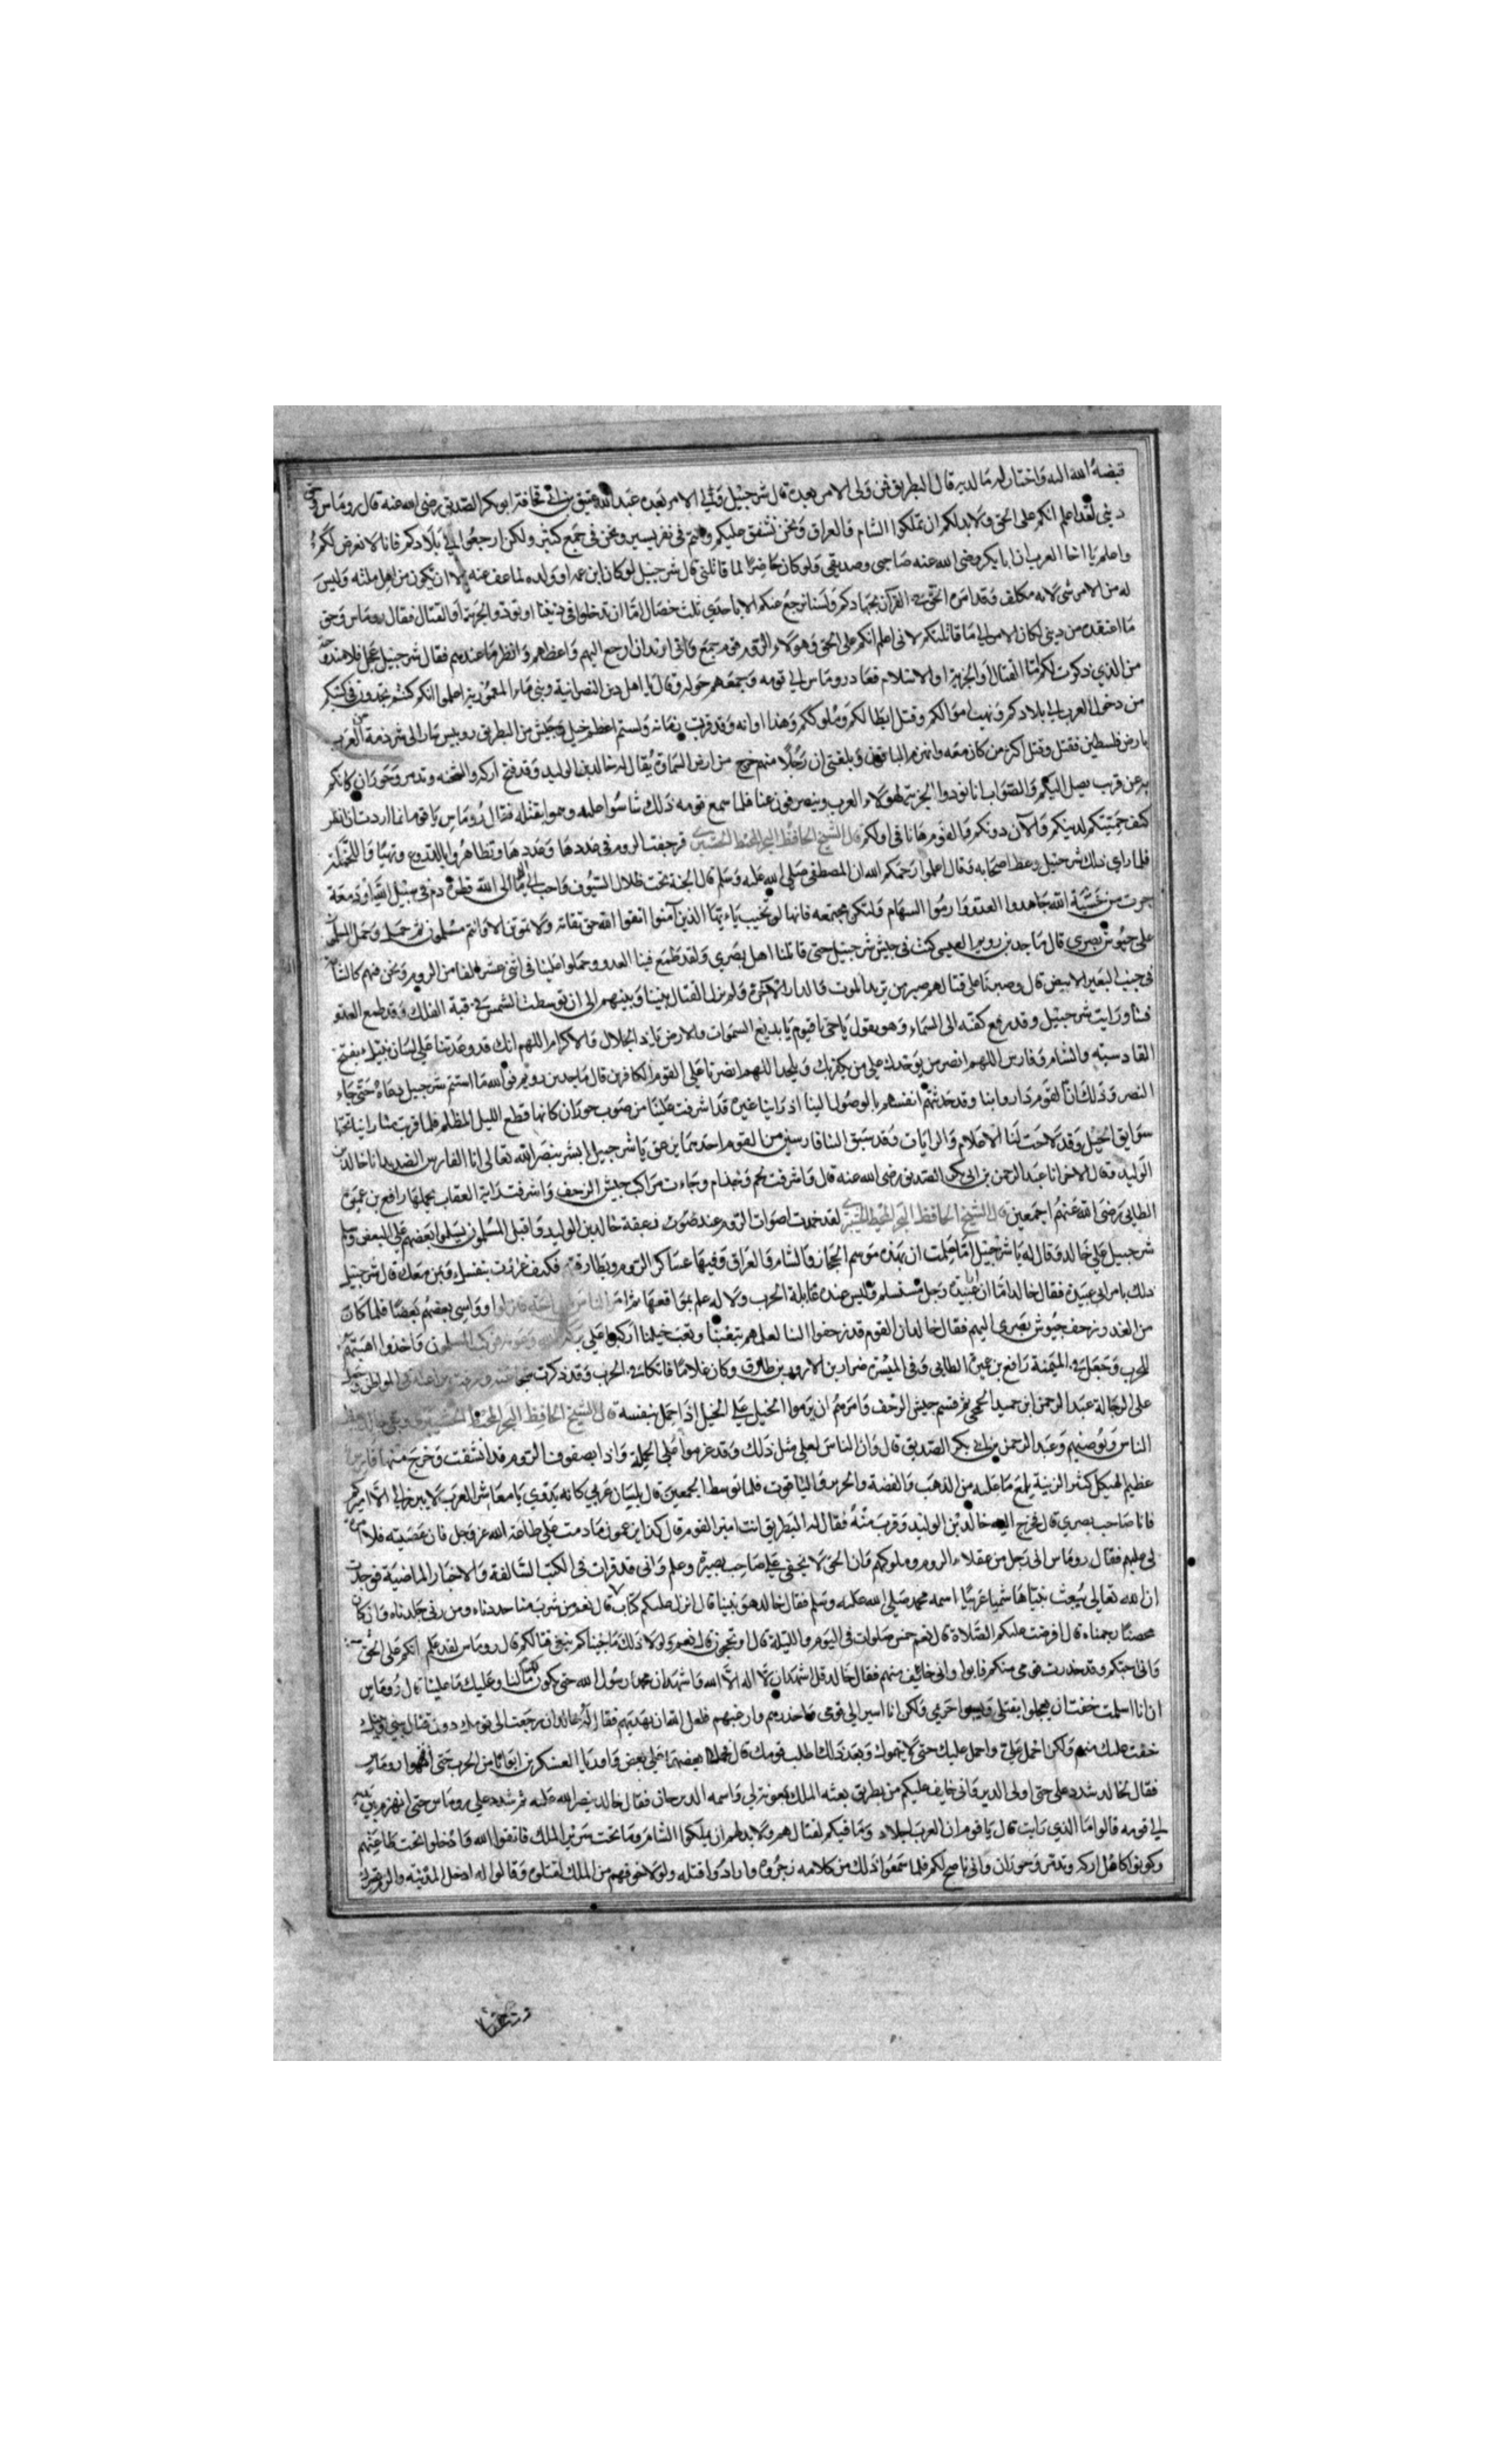 قبضه الله اليه واختار له ما لديه قال البطريق فمن ولى الامر بعده قال شرحبيل ولي الامر بعده عبد الله عتيق بن ابي قحافة ابو بكر الصديق رضي الله عنه قال روماس وحق
ديني لقد اعلم انكم على الحق ولا بد لكم ان تملكوا الشام والعراق ونحن نشفق عليكم وانتم في نفر يسير ونحن في جمع كثير ولكن ارجعوا الى بلادكم فانا لا نعرض لكم
واعلم يا اخا العرب ان ابا بكر رضي الله عنه صاحبي وصديقي ولو كان حاضرا لما قاتلني قال شرحبيل لو كان ابن عمه او ولده لما عف عنه الا ان يكون من اهل ملته وليس
له من الامر شي لانه مكلف وقد امره الحق في القرآن بجهادكم ولسنا نرجع عنكم الا باحدى ثلث خصال اما ان تدخلوا في ديننا او تودوا الجزية او القتال فقال روماس وحق
ما اعتقده من ديني لو كان الامر الي ما قاتلتكم لاني اعلم انكم على الحق وهولاء الروم قوم جمع واني اريد ان ارجع اليهم واعظهم وانظر ما عندهم فقال شرحبيل عجل فلا بد
من الذي ذكرت لكم اما القتال او الجزية او الاسلام فعاد روماس الى قومه وجمعهم حوله وقال يا اهل دين النصرانية وبني ماء المعمودية اعلموا انكم كنتم تجدون في كتبكم
من دخول العرب الى بلادكم ونهب اموالكم وقتل ابطالكم وملوككم وهذا اوانه وقد قرب زمانه ولستم اعظم خيل وجيش من البطريق روبيس سار الى شرذمة من العرب
بارض فلسطين فقتل وقتل اكثر من كان معه وانهزم الباقون وبلغني ان رجلا منهم خرج من ارض السماوة يقال له خالد بن الوليد وقد فتح اركه والسخنه وتدمر وحوران كانكم
به عن قريب يصل اليكم والصواب انا نودوا الجزية لهولاء العرب وينصرفون عنا فلما سمع قومه ذلك شاشوا عليه وهموا بقتله فقال روماس يا قوم انما اردت ان انظر
كيف حميتكم لدينكم والآن دونكم والقوم ها انا في اولكم قال الشيخ الحافظ البحر المحيط الحسيري فرجفت الروم في عددها وعددها وتظاهروا بالدروع وتهيا والحملة
فلما راى ذلك شرحبيل وعظ اصحابه وقال اعلموا رحمكم الله ان المصطفى صلى الله عليه وسلم قال الجنة تحت ظلال السيوف واحب ما الى الله قطرة دم في سبيل الله او دمعة
جرت من خشية الله جاهدوا العدو وارموا السهام ولتكن مجتمعه فانها لو تخيب يا ايها الذين آمنوا اتقوا الله حق تقاته ولا تموتن الا وانتم مسلمون ثم حمل وحمل المسلمون
على جيوش بصرى قال ماجد بن رويم العبسي كنت في جيش شرحبيل حتى قاتلنا اهل بصرى ولقد طمع فينا العدو وحملوا علينا في اثني عشر الفا من الروم ونحن فيهم كالشامة
في جنب البعير الابيض قال وصبرنا على قتالهم صبر من يريد الموت والدار الآخرة ولم يزل القتال بيننا وبينهم الى ان توسطت الشمس في قبة الفلك وقد طمع العدو
فينا ورايت شرحبيل وقد رفع كفه الى السماء وهو يقول يا حي يا قيوم يا بديع السموات والارض يا ذا الجلال والاكرام اللهم انك قد وعدتنا على لسان نبيك بفتح
القادسيه والشام وفارس اللهم انصر من يوحدك على من يكفر بك ويلحد اللهم انصرنا على القوم الكافرين قال ماجد بن رويم فوالله ما استتم شرحبيل دعاه حتى جاء
النصر وذلك ان القوم داروا بنا وقد حدثتهم انفسهم بالوصول الينا اذ راينا غبرة قد اشرفت علينا من صوب حوران كانها قطع الليل المظلم فلما قربت منا راينا تحتها
سوابق الخيل وقد لاحت لنا الاعلام والرايات وقد سبق الينا فارسين من القوم احدهما يزعق يا شرحبيل ابشر بنصر الله تعالى انا الفارس الصنديد انا خالد بن
الوليد وقال الاخر انا عبد الرحمن بن ابي بكر الصديق رضي الله عنه قال واشرفت لخم وجذام وجاءت مراكب جيش الزحف واشرفت راية العقاب يحملها رافع بن عميرة
الطائي رضي الله عنهم اجمعين قال الشيخ الحافظ البحر المحيط الحسيري لقد خمدت اصوات الروم عند صوت زعقة خالد بن الوليد واقبل المسلمون يسلموا بعضهم على البعض وسلم
شرحبيل على خالد وقال له يا شرحبيل اما علمت ان هذه موسم الحجاز والشام والعراق وفيها عساكر الروم وبطارقته فكيف غررت بنفسك وبمن معك قال شرحبيل
ذلك بامر ابي عبيدة فقال خالد اما ان ابا عبيدة رجل مستسلم وليس عنده غايلة الحرب ولا له علم بمواقعها ثم امر الناس بالراحة فنزلوا وواسى بعضهم بعضا فلما كان
من الغد وزحف جيوش بصرى اليهم فقال خالد ان القوم قد زحفوا الينا لعلمهم بتعبنا وتعب خيلنا اركبوا على بركة الله وعونه فركب المسلمون واخذوا اهبتهم
للحرب وجعل في الميمنة رافع بن عميرة الطايي وفي الميسرة ضرار بن الازور بن طارق وكان غلاما فاتكا في الحرب وقد ذكرت شجاعته في المواطن وجعل
على الرجالة عبد الرحمن ابن حميد الجمحي ثم قسم جيش الزحف وامرهم ان يرموا الخيل على الخيل اذا حمل بنفسه قال الشيخ الحافظ البحر المحيط الحسيري وبقي خالد يعظ
الناس ويوصيهم وعبد الرحمن بن ابي بكر الصديق قال وان الناس لعلى مثل ذلك وقد عزموا على الحملة واذا بصفوف الروم قد انشقت وخرج منها فارس
عظيم الهيكل كثير الزينة يلمع ما عليه من الذهب والفضة والحرير والياقوت فلما توسط الجمعين قال بلسان عربي كانه بدوي يا معاشر العرب لا يبرز الي الا اميركم
فانا صاحب بصرى قال فخرج اليه خالد بن الوليد وقرب منه فقال له البطريق انت امير القوم قال كذا يزعمون ما دمت على طاعة الله عز وجل فان عصيته فلا امرة
لي عليهم فقال روماس اني رجل من عقلاء الروم وملوكهم وان الحق لا يخفى على صاحب بصيرة وعلم واني قد قرات في الكتب السالفة والاخبار الماضية فوجدت
ان الله تعالى يبعث نبيا هاشميا عربيا اسمه محمد صلى الله عليه وسلم فقال خالد هو نبينا قال انزل عليكم كتاب قال نعم من شرب منا حددناه ومن زنى جلدناه وان كان
محصنا رجمناه قال افرضت عليكم الصلاة قال نعم خمس صلوات في اليوم والليلة قال او تحجون قال نعم ولولا ذلك ما جيناكم نبغي قتالكم قال روماس لقد علم انكم على الحق
واني محبكم وقد حذرت قومي منكم فابوا واني خائف منهم فقال خالد قل اشهد ان لا اله الا الله واشهد ان محمدا رسول الله حتى يكون لك ما لنا وعليك ما علينا قال روماس
ان انا اسلمت خفت ان يعجلوا بقتلي ويسبوا حريمي ولكن انا اسير الى قومي واحذرهم وارغبهم فلعل الله ان يهديهم فقال له خالد ان رجعت الى قومك دون قتال بيني وبينك
خفت عليك منهم ولكن احمل علي واحمل عليك حتى لا يتهموك وبعد ذلك اطلب قومك قال فحمل بعضهما على بعض واوريا العسكرين ابوابا من الحرب حتى روماس
فقال خالد شدد علي حتى اولى الدبر واني خايف عليكم من بطريق بعثه الملك معونة لي واسمه الديرجان فقال خالد ينصرنا الله عليه ثم شدد على روماس حتى انهزم من بين يديه
الى قومه قالوا ما الذي رايت قال يا قوم ان العرب اجلاد وما فيكم لقتالهم ولا بد لهم ان يملكوا الشام وما تحت سرير الملك فاتقوا الله وادخلوا تحت طاعتهم
وكونوا كاهل اركه وتدمر وحوران واني ناصح لكم فلما سمعوا ذلك من كلامه زجروه وارادوا قتله ولولا خوفهم من الملك لقتلوه وقالوا له ادخل المدينة والزم قصرك